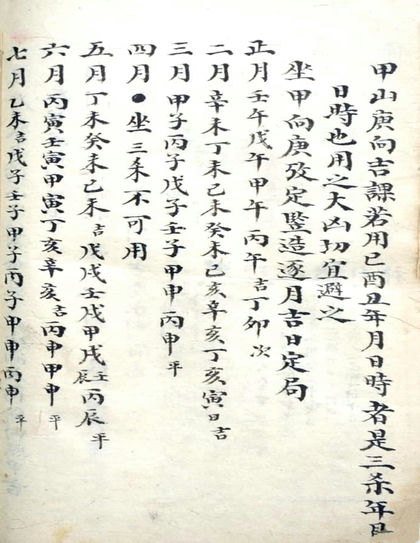 甲山庚向吉課若用巳酉丑年月日時者是三杀年月
日時也用之大凶切宜避之
坐甲向庚攷定豎造逐月吉日定局
正月壬午戊午甲午丙午吉丁卯次
二月辛未丁未己未癸未己亥辛亥丁亥寅日吉
三月甲子丙子戊子壬子甲申丙申平
四月●坐三杀不可用
五月丁未癸未己未吉戊戌壬戌甲戌壬辰丙辰平
六月丙寅壬寅甲寅丁亥辛亥吉丙申甲申平
七月乙未吉戊子壬子甲子丙子甲申丙申平